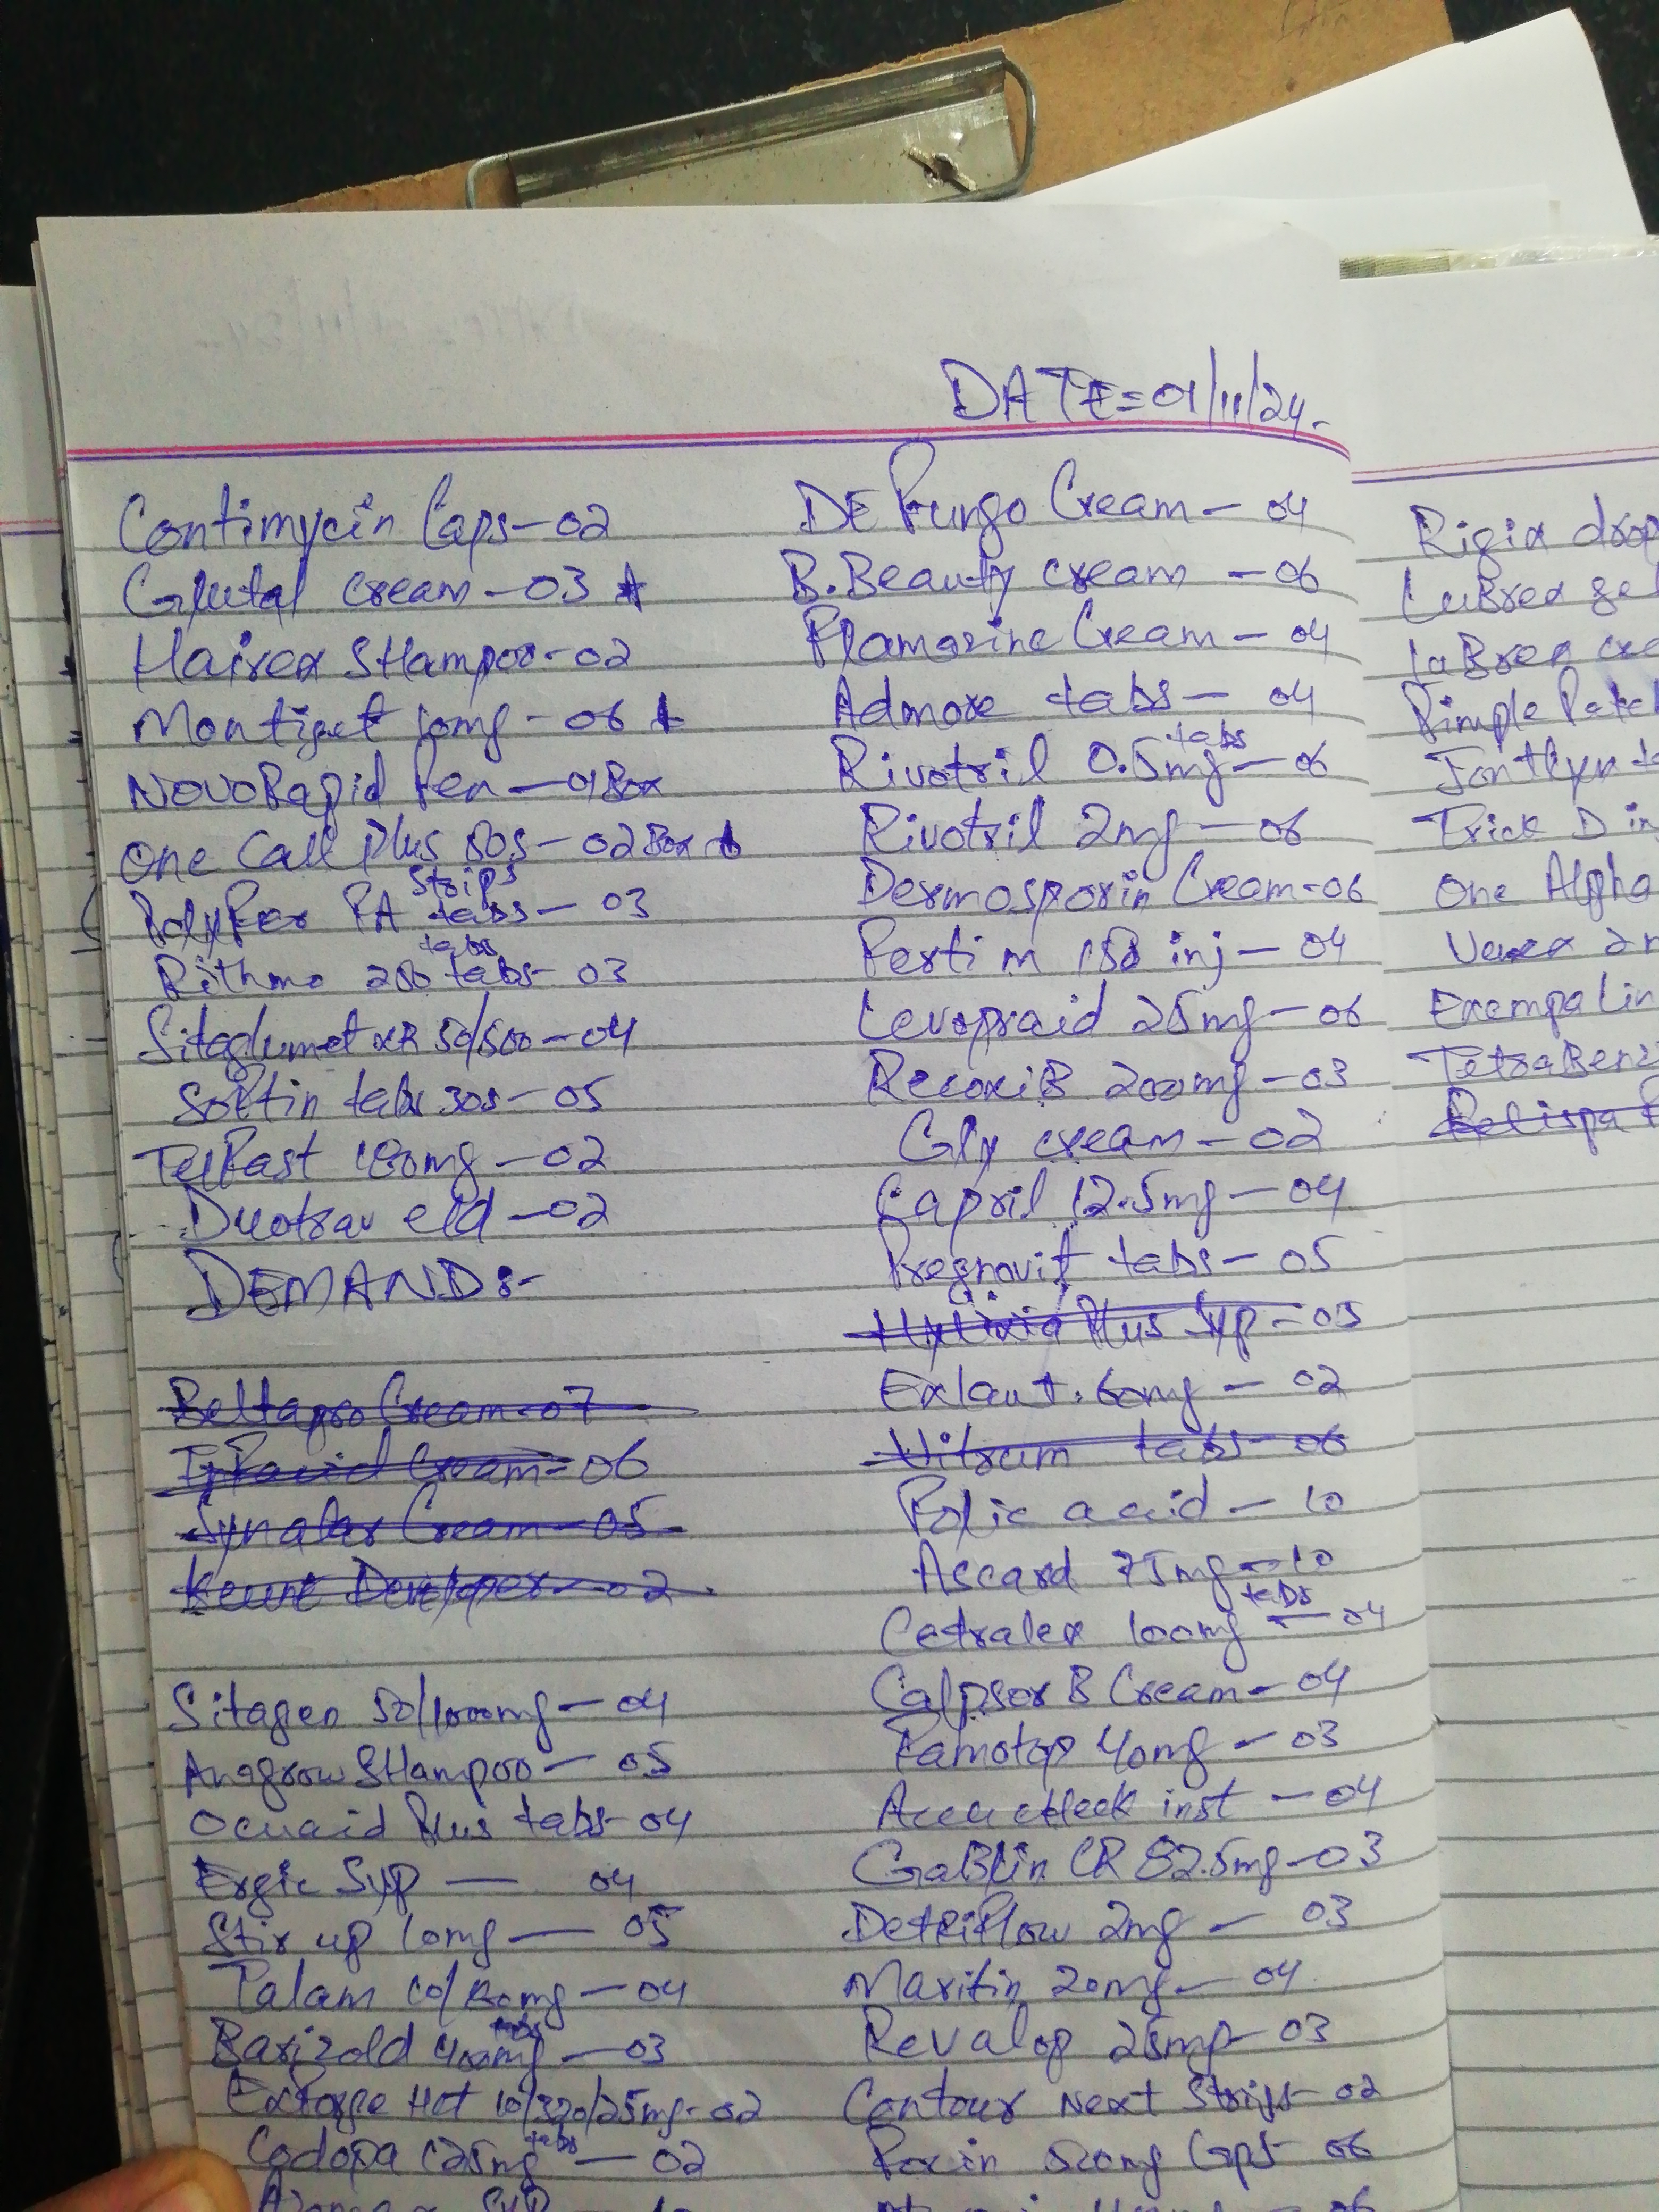 DATE=01/11/24.
Contimycin Caps-02
Glutal cream-03
Hairex SHampoo-02
Montiget 10mg-06
NovoRapid Pen-01Box
One Call Plus 50s-02Box
Strips
PolyFer FA tabs-03
tabs
Rithmo 250 tabs-03
Sitaglumet XR 50/500-04
Softin tabs 30s-05
TelFast 180mg-02
Duotrav e/d-02
DEMAND:-
Beltapro Cream-07
Cream-06
Synalar Cream-05
Keune Developer-02
Sitagen 50/1000mg-04
Anagrow SHampoo-05
Ocuaid Plus tabs-04
Ergic Syp-04
Stir up 10mg-05
Talam 10/ mg-04
tabs
Barizold 400mg-03
Extorge Hct 10/320/25mg-02
tabs
Codopa 125mg-02
Syp
DE Fungo Cream-04
B.Beauty cream-06
Flamazine Cream-04
Admore tabs-04
tabs
Rivotril 0.5mg-06
Rivotril 2mg-06
Dermosporin Cream-06
Ferti m 150 inj-04
Levopraid 25mg-06
RecoxiB 200mg-03
Gly cream-02
Capril 12.5mg-04
Pregnovit tabs-05
Plus Syp-03
Exlant.60mg-02
Vitrum tabs-06
Folic acid-10
Ascard 75mg-10
tabs
Cetralex 100mg-04
Calpsor B Cream-04
Famotop 40mg-03
Accu cHeck inst-04
GaBlin CR 82.5mg-03
DetriFlow 2mg-03
Maxitin 20mg-04
Revalop 25mg-03
Contour Next Strips-02
500mg Cps-06
Rigix drop
LuBrex gel
laBrex cre
Pimple Patch
Trick D in
One Alpha
Exempalin
TetraBenz